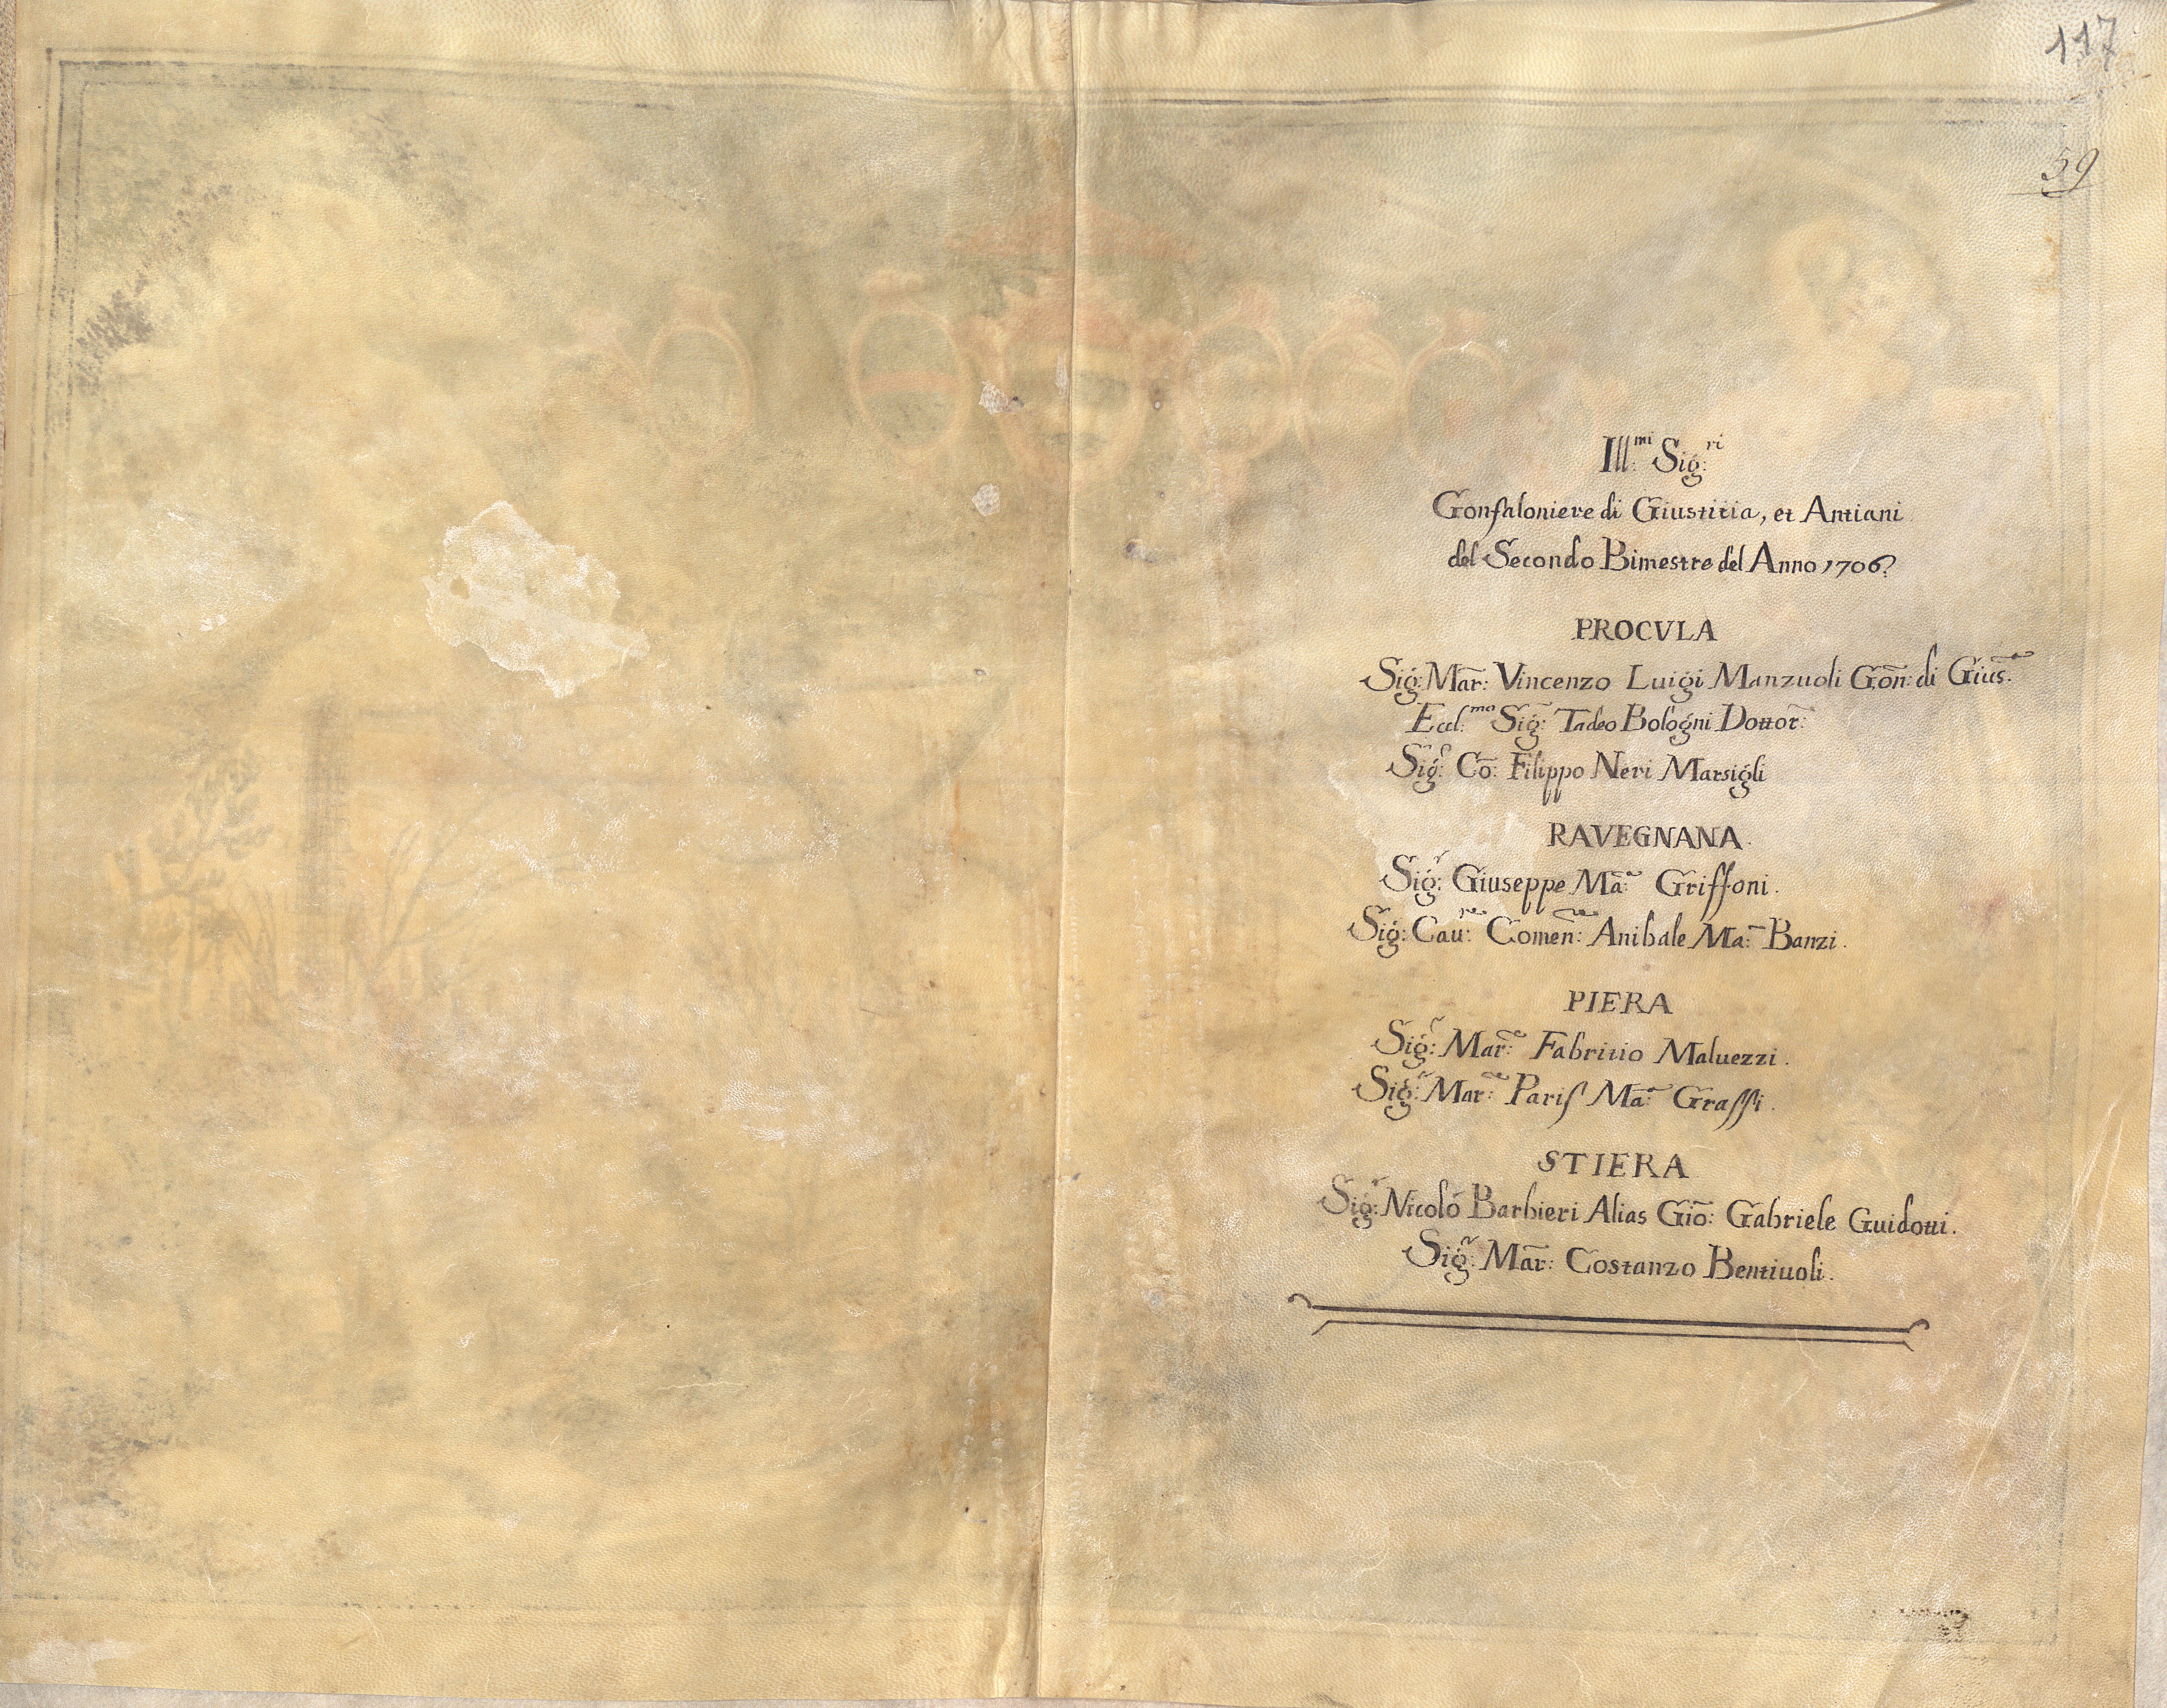 117
59
Ill:mi Sig:ri
Gonfaloniere di Giustitia, et Antiani
del Secondo Bimestre del Anno 1706.
PROCVLA
Sig: Mar: Vincenzo Luigi Manzuoli Gon: di Gius:a
Eccl:mo Sig: Tadeo Bologni Dottor:
Sig:r Co: Filippo Neri Marsigli
RAVEGNANA.
Sig:r Giuseppe Ma:a Griffoni.
Sig:r Cau:re Comen:re Anibale Ma:a Banzi.
PIERA
Sig:r Mar:e Fabritio Maluezzi.
Sig:r Mar:e Pariſ Ma:a Graſſi.
STIERA
Sig:r Nicolò Barbieri Alias Gio: Gabriele Guidotti.
Sig:r Mar: Costanzo Bentiuoli.